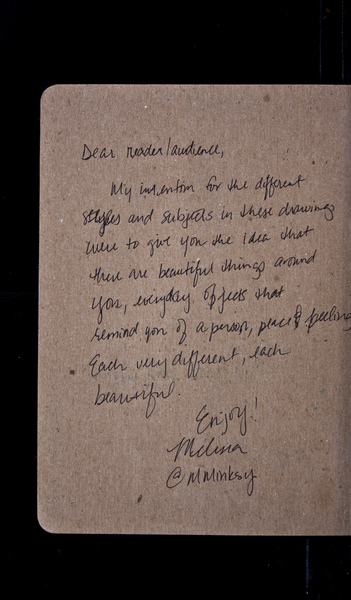 Dear reader/audience,
My intention for the different
styles and subjects in these drawings
were to give you the idea that
there are beautiful things around
you, everyday objects that
remind you of a person, place & feeling
Each very different, each
beautiful.
Enjoy!
Melissa
@MMinksy